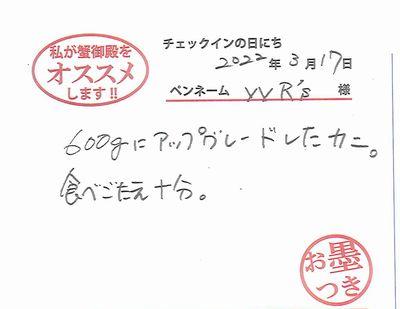 私が蟹御殿を
オススメ
します!!
チェックインの日にち
2022年3月17日
ペンネーム VVR's 様
600gにアップグレードしたカニ。
食べごたえ十分。
お墨
つき